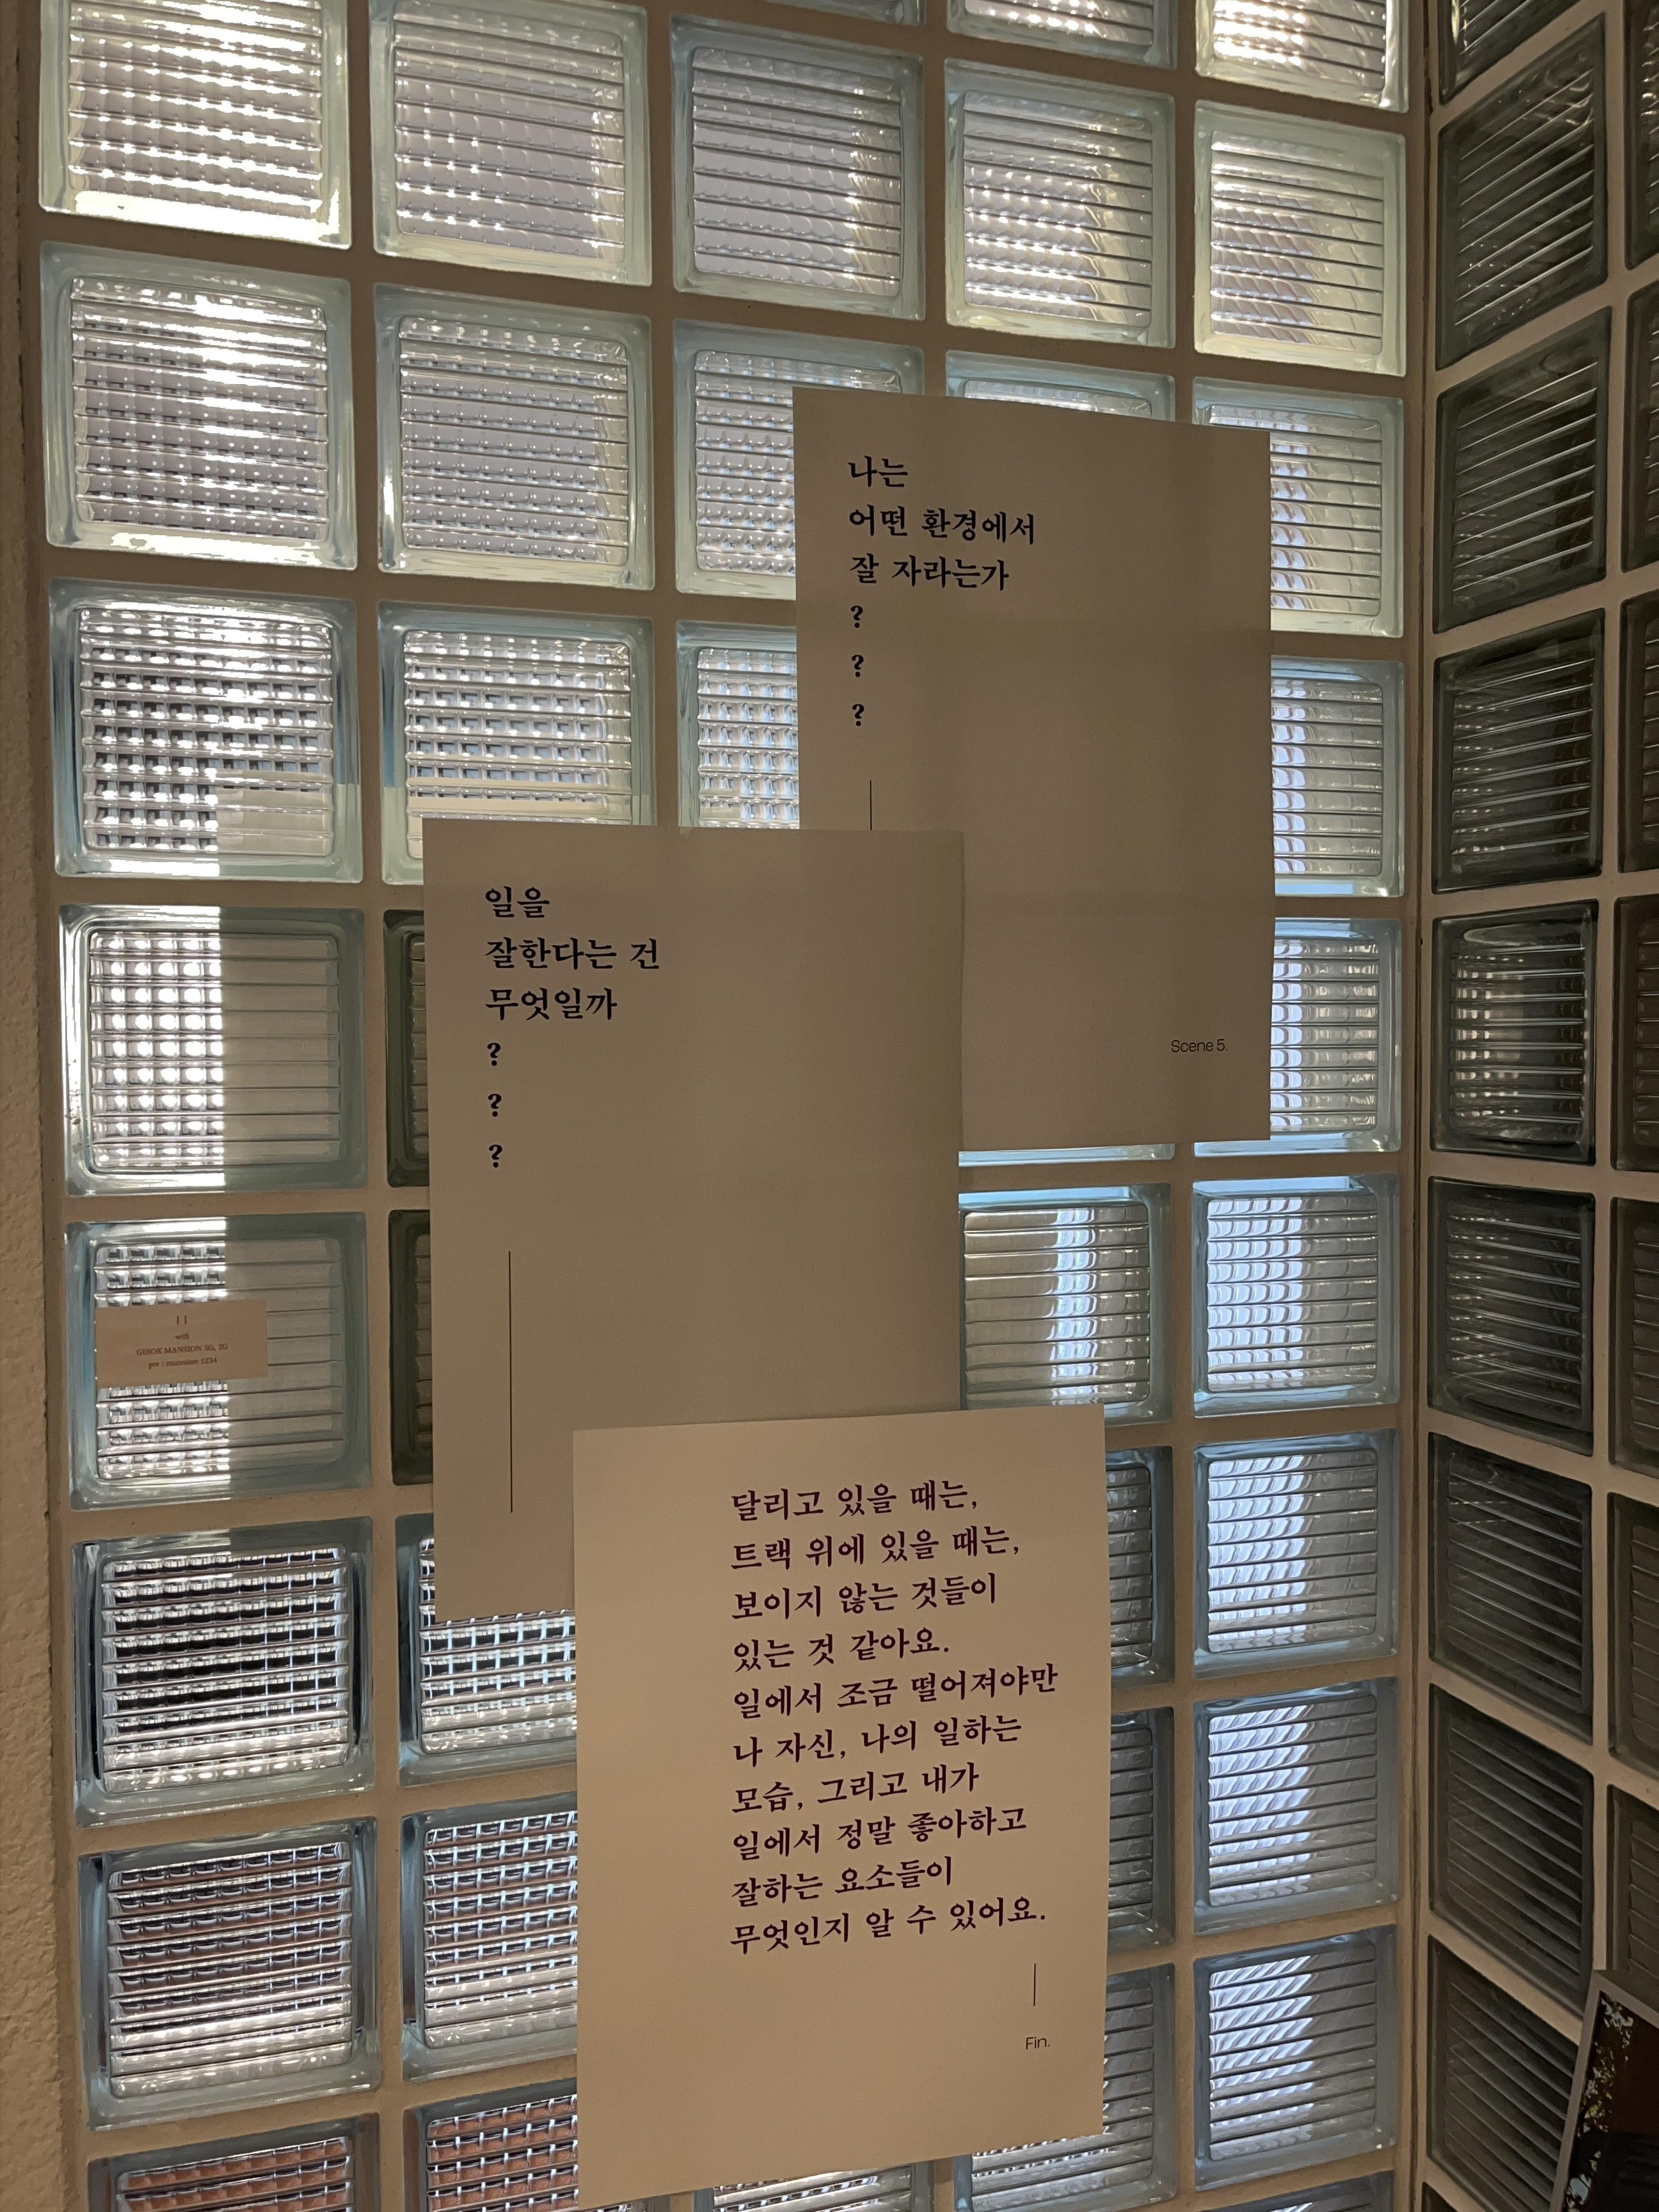 나는
어떤 환경에서
잘 자라는가
?
?
?
Scene 5.
일을
잘한다는 건
무엇일까
?
?
?
[ ]
wifi
GIROK MANSION 5G, 2G
pw : mansion 1234
달리고 있을 때는,
트랙 위에 있을 때는,
보이지 않는 것들이
있는 것 같아요.
일에서 조금 떨어져야만
나 자신, 나의 일하는
모습, 그리고 내가
일에서 정말 좋아하고
잘하는 요소들이
무엇인지 알 수 있어요.
Fin.